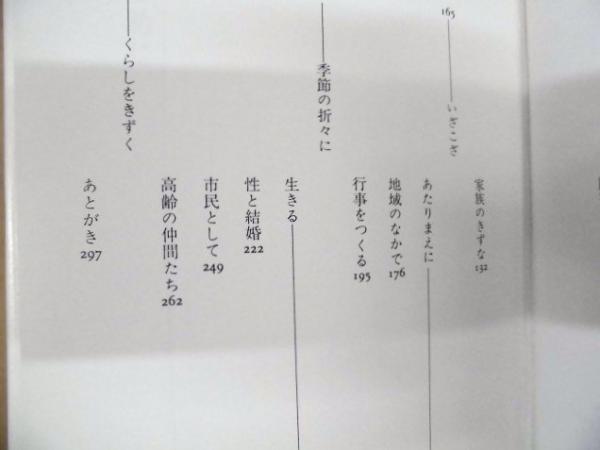 家族のきずな132
165
いざこざ
あたりまえに
地域のなかで176
行事をつくる195
季節の折々に
生きる
性と結婚222
市民として249
高齢の仲間たち262
くらしをきずく
あとがき297